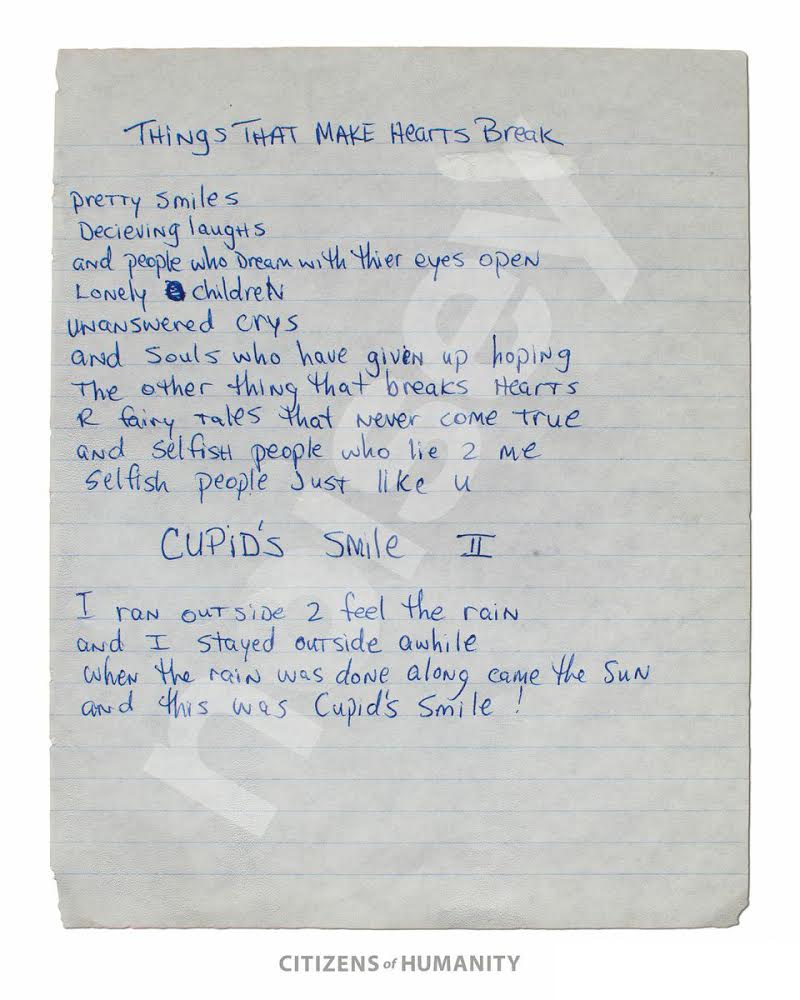 THINGS THAT MAKE HEARTS BREAK
pretty smiles
Decieving laughs
and people who Dream with thier eyes open
Lonely children
unanswered crys
and Souls who have given up hoping
The other thing that breaks Hearts
R fairy tales that never come true
and selfish people who lie 2 me
selfish people just like u
CUPID'S Smile II
I ran outside 2 feel the rain
and I stayed outside awhile
when the rain was done along came the Sun
and this was Cupid's Smile !
noisey
CITIZENS of HUMANITY